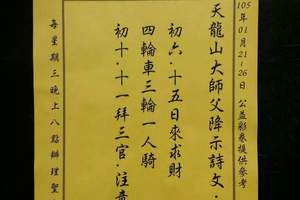 105年01月21~26日 公益彩券提供參考
天龍山大師父降示詩文·
初六·十五日來求財
四輪車三輪一人騎
初十·十一拜三官·注意
每星期三晚上八點辦理聖